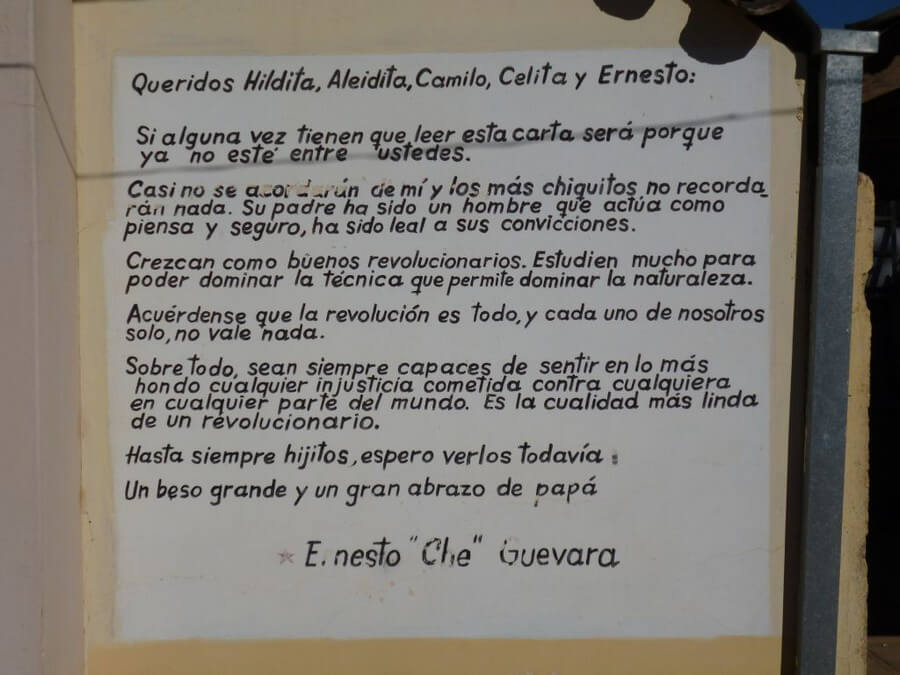 Queridos Hildita, Aleidita, Camilo, Celita y Ernesto:
Si alguna vez tienen que leer esta carta será porque
ya no esté entre ustedes.
Casi no se acordarán de mí y los más chiquitos no recorda_
rán nada. Su padre ha sido un hombre que actúa como
piensa y seguro, ha sido leal a sus convicciones.
Crezcan como buenos revolucionarios. Estudien mucho para
poder dominar la técnica que permite dominar la naturaleza.
Acuérdense que la revolución es todo, y cada uno de nosotros
solo, no vale nada.
Sobre todo, sean siempre capaces de sentir en lo más
hondo cualquier injusticia cometida contra cualquiera
en cualquier parte del mundo. Es la cualidad más linda
de un revolucionario.
Hasta siempre hijitos, espero verlos todavía.
Un beso grande y un gran abrazo de papá
Ernesto "Che" Guevara